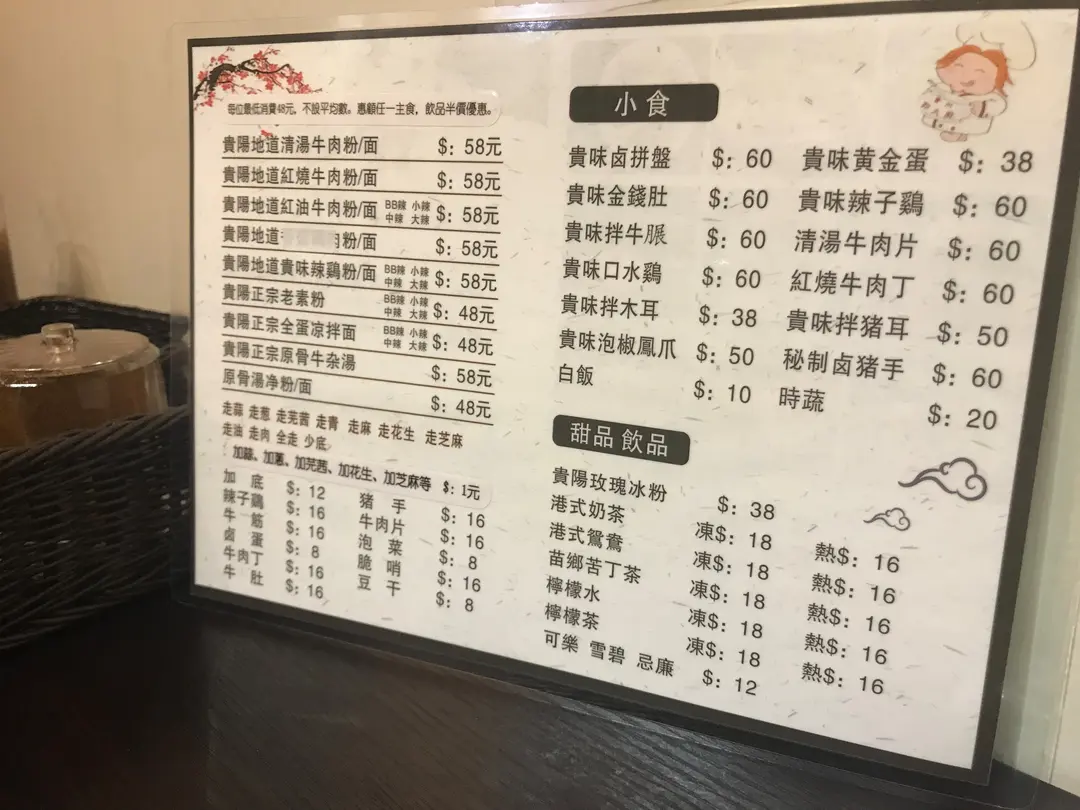 每位最低消費48元，不設平均數。惠顧任一主食，飲品半價優惠。
貴陽地道清湯牛肉粉/面 $：58元
貴陽地道紅燒牛肉粉/面 $：58元
貴陽地道紅油牛肉粉/面 BB辣 小辣 中辣 大辣 $：58元
貴陽地道 肉粉/面 $：58元
貴陽地道貴味辣鷄粉/面 BB辣 小辣 中辣 大辣 $：58元
貴陽正宗老素粉 BB辣 小辣 中辣 大辣 $：48元
貴陽正宗全蛋凉拌面 BB辣 小辣 中辣 大辣 $：48元
貴陽正宗原骨牛杂湯 $：58元
原骨湯净粉/面 $：48元
走蒜 走蔥 走芫茜 走青 走麻 走花生 走芝麻
走油 走肉 全走 少底
加蒜、加蔥、加芫茜、加花生、加芝麻等 $：1元
加底 $：12 猪手 $：16
辣子鷄 $：16 牛肉片 $：16
牛筋 $：16 泡菜 $：8
卤蛋 $：8 脆哨 $：16
牛肉丁 $：16 豆干 $：8
牛肚 $：16
小食
貴味卤拼盤 $：60 貴味黄金蛋 $：38
貴味金錢肚 $：60 貴味辣子鷄 $：60
貴味拌牛𦟌 $：60 清湯牛肉片 $：60
貴味口水鷄 $：60 紅燒牛肉丁 $：60
貴味拌木耳 $：38 貴味拌猪耳 $：50
貴味泡椒鳳爪 $：50 秘制卤猪手 $：60
白飯 $：10 時蔬 $：20
甜品 飲品
貴陽玫瑰冰粉 $：38
港式奶茶 凍$：18 熱$：16
港式鴛鴦 凍$：18 熱$：16
苗鄉苦丁茶 凍$：18 熱$：16
檸檬水 凍$：18 熱$：16
檸檬茶 凍$：18 熱$：16
可樂 雪碧 忌廉 $：12